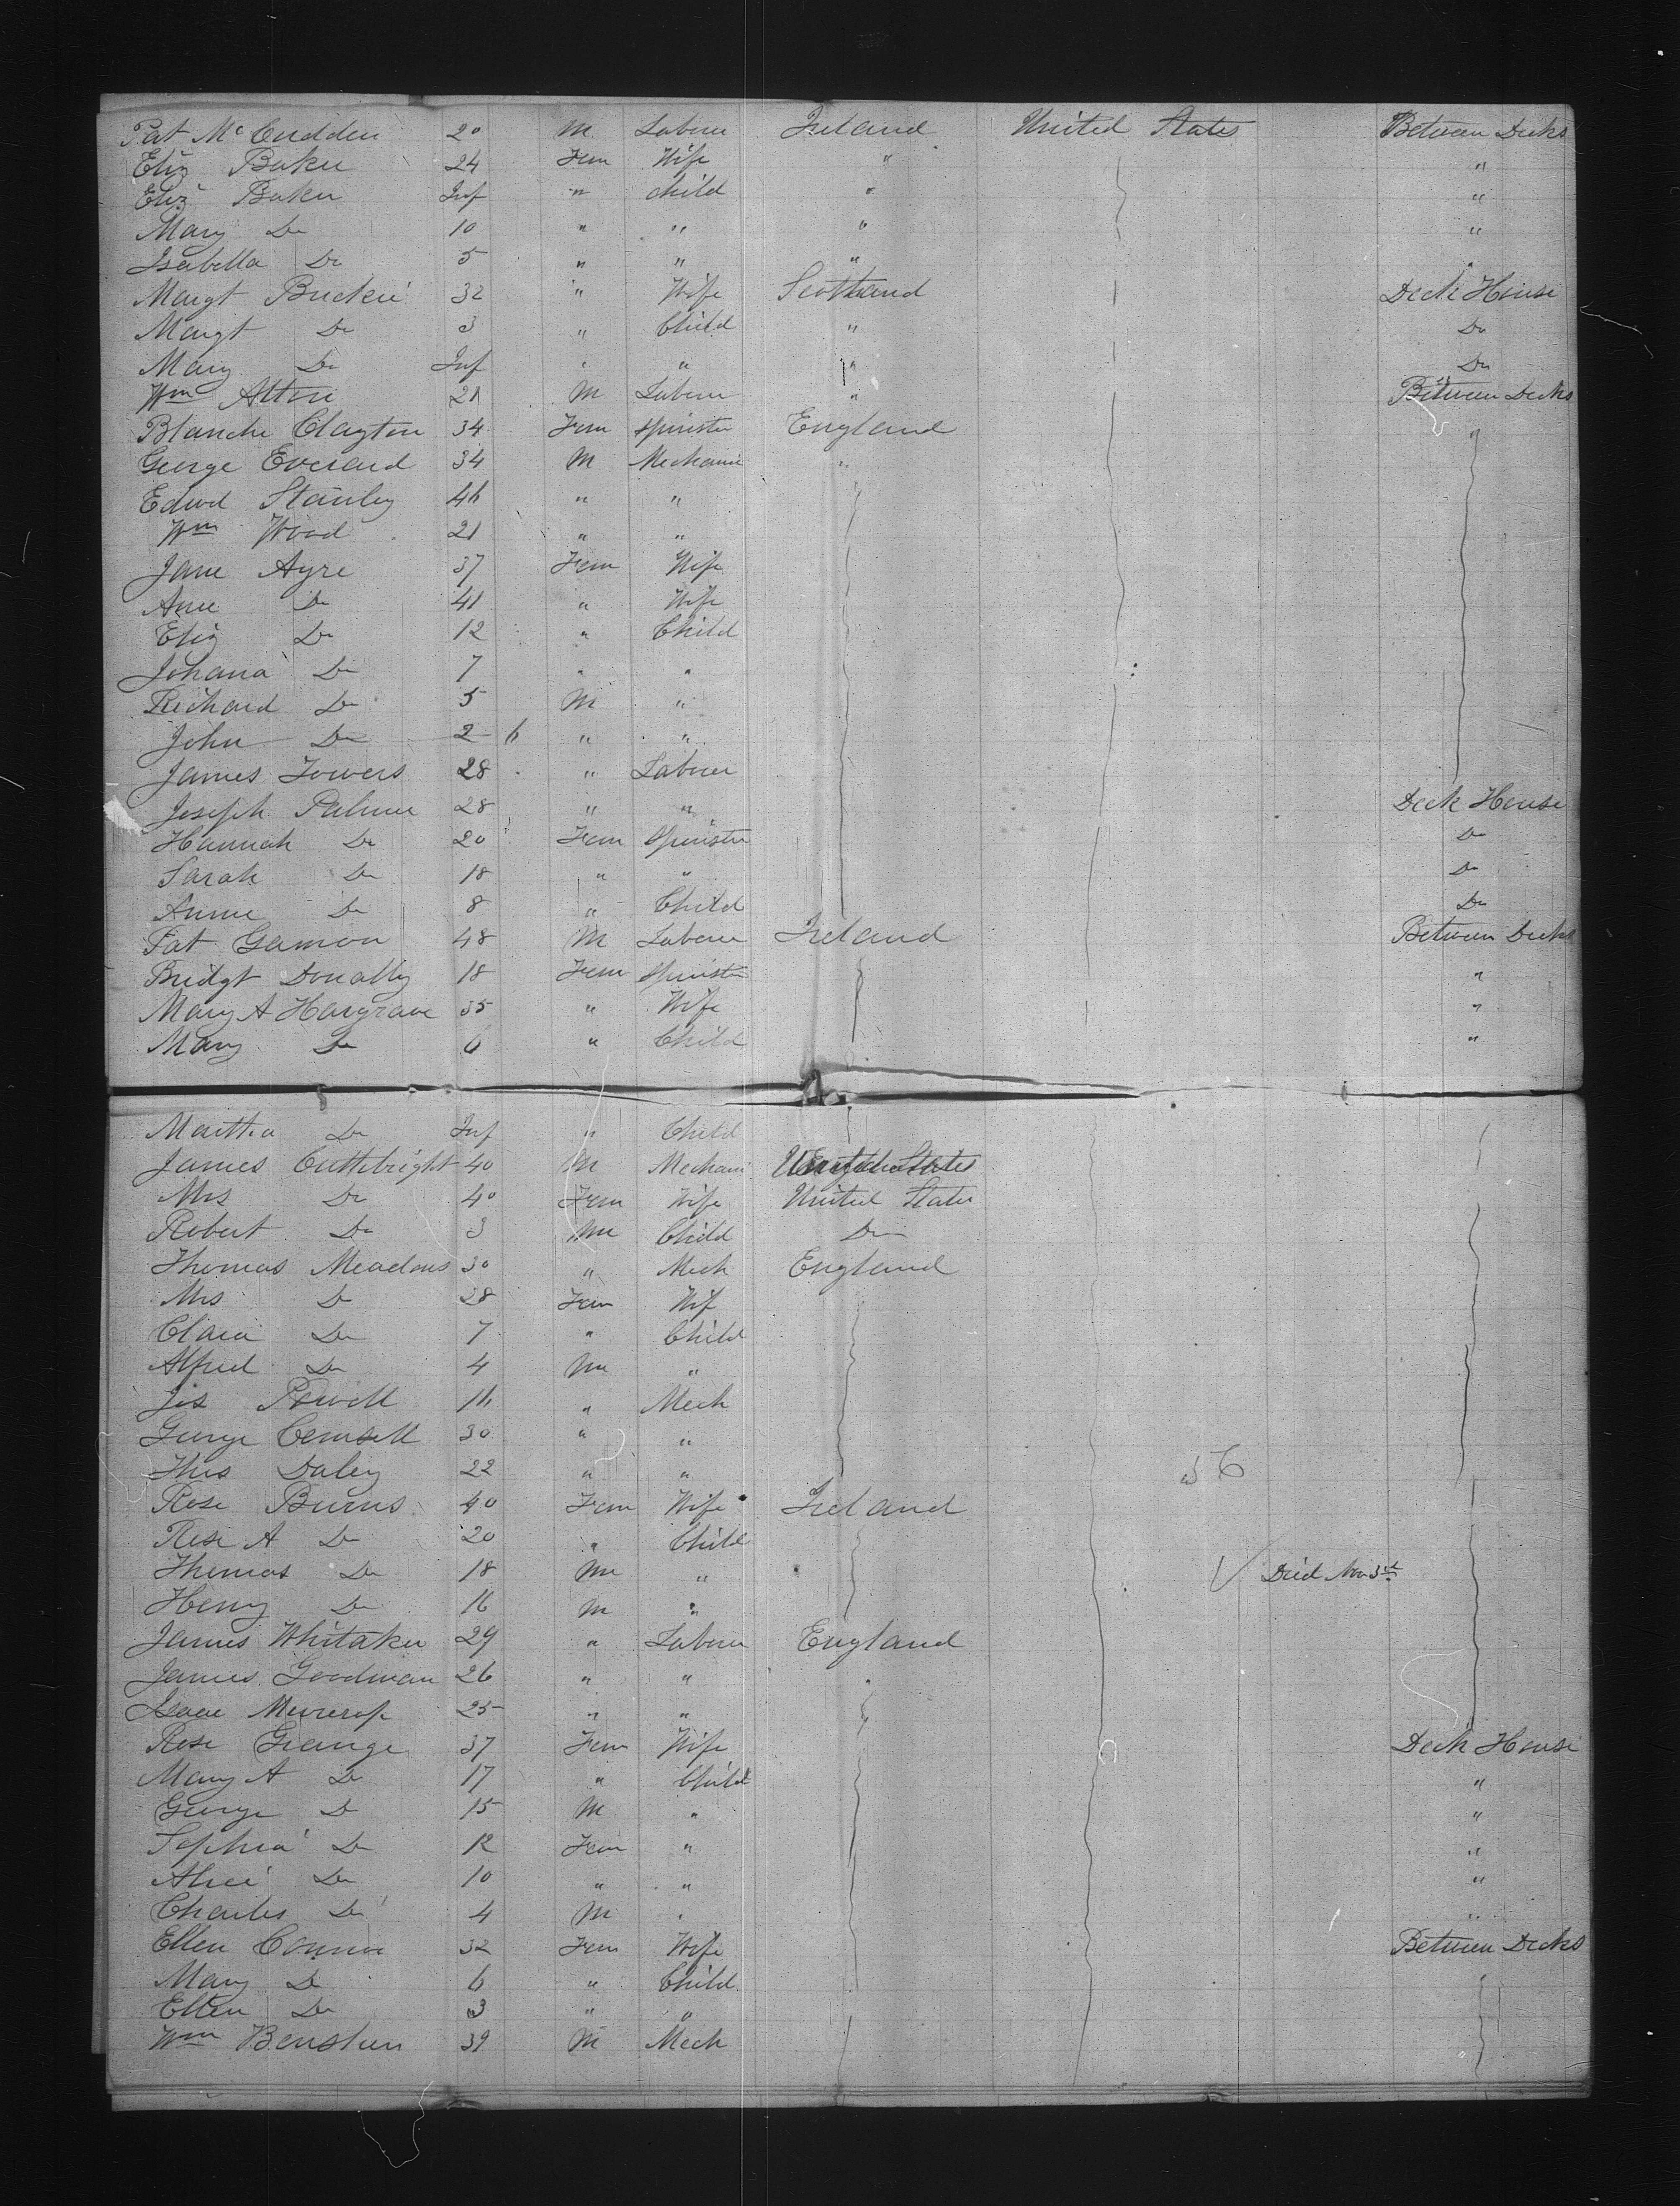 Pat McCudden 20 M Laborer Ireland United States Between Decks
Eliz Baker 24 Fem Wife " "
Eliz Baker Inf " child " "
Mary Do 10 " " " "
Isabella Do 5 " " " "
Margt Buckie 32 " Wife Scotland Deck House
Margt Do 3 " Child " Do
Mary Do Inf " " " Do
Wm Altire 21 M Laborer " Between Decks
Blanche Clayton 34 Fem Spinster England "
George Everard 34 M Mechanic "
Edwd Stanley 46 " "
Wm Wood 21 " "
Jane Ayre 37 Fem Wife
Ann Do 41 " Wife
Eliz Do 12 " Child
Johana Do 7 " "
Richard Do 5 M "
John Do 2 6 " "
James Towers 28 " Laborer
Joseph Palmer 28 " " Deck House
Hannah Do 20 Fem Spinster Do
Sarah Do 18 " " Do
Annie Do 8 " Child Do
Pat Gamon 48 M Laborer Ireland Between Decks
Bridgt Donally 18 Fem Spinster "
Mary A Hargrave 35 " Wife "
Mary Do 6 " Child "
Martha Do Inf " Child
James Cuttebright 40 M Mechani United States
Mrs Do 40 Fem Wife United States
Robert Do 3 M Child Do
Thomas Meadows 30 " Mech England
Mrs Do 28 Fem Wif
Clara Do 7 " Child
Alfred Do 4 M "
Jos Powell 16 " Mech
George 30 " "
Thos Daley 22 " "
Rose Burns 40 Fem Wife Ireland
Rose A Do 20 " Child
Thomas Do 18 M " Died Nov 3rd
Henry Do 16 M "
James Whitaker 29 " Laborer England
James Goodman 26 " "
Isaac 25 " "
Rose Grange 37 Fem Wife Deck House
Mary A Do 17 " Child "
George Do 15 M " "
Sophia Do 12 Fem " "
Alice Do 10 " " "
Charles Do 4 M " "
Ellen Connor 32 Fem Wife Between Decks
Mary Do 6 " Child
Ellen Do 3 " "
Wm Benstein 39 M Mech